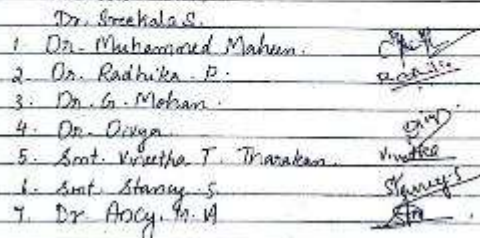 Dr. Sreekala S.
1. Dr. Muhammed Maheen.
2. Dr. Radhika. P.
3. Dr. G. Mohan.
4. Dr. Divya.
5. Smt. Vineetha T. Tharakan. Vineetha
6. Smt. Stancy. S. Stancy S
7. Dr. Ancy. M. A